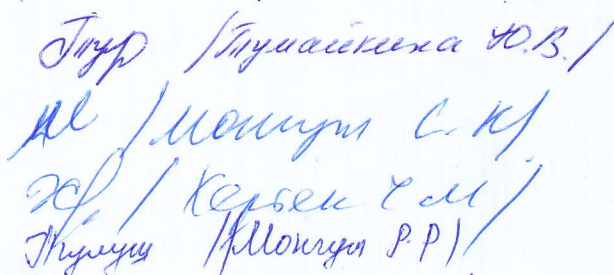 /Тумайкина Ю.В./
/Монгуш С. К/
/ Хертек Ч М /
/Монгуш Р.Р/